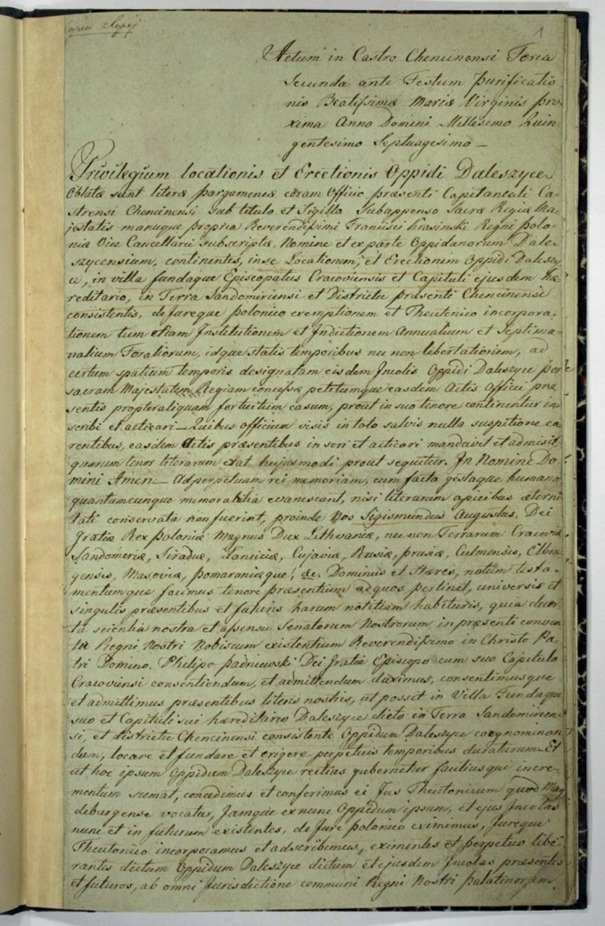 1
Actum in Castro Chencinensi Feria
Secunda ante Festum purificatio
nis Beatissimæ Mariæ Virginis pro
xima Anno Domini Millesimo Quin
gentesimo Septuagesimo —
Privilegium locationis et Erectionis Oppidi Daleszyce
Oblatæ sunt literæ pargameneæ coram Officio præsenti Capitaneali Ca
strensi Chencinensi Sub titulo et Sigillo Subappenso Sacræ Regiæ Ma
jestatis manuque propria Reverendissimi Francisci Krasinski Regni Polo
niæ Vice Cancellarii Subscriptæ, Nomine et ex parte Oppidanorum Dale
szycensium, continentes, in se Locationem, et Erectionem Oppidi Daleszy
ce, in villa fundoque Episcopatus Cracoviensis et Capituli ejusdem Hæ
reditario, in Terra Sandomiriensi et Districtu præsenti Chencinensi
consistentis, de jureque polonico exemptionem et Theutonico incorpora
tionem tum etiam Institutionem et Indictionem Annualium et Septima
nalium Foraliorum, idque statis temporibus nec non libertationem, ad
certum spatium temporis designatam eisdem Incolis Oppidi Daleszyce per
sacram Majestatem Regiam concessæ petitumque easdem Actis Officii præ
sentis propter aliquam fortuitum casum, prout in suo tenore continentur in
scribi et acticari — Quibus officium visis in toto salvis nulla suspitione ca
rentibus, easdem Actis præsentibus in seri et acticari mandavit et admisit
quarum tenor literarum extat hujusmodi prout sequitur. In Nomine Do
mini Amen — Ad perpetuam rei memoriam, cum facta gestaque humana
quantumcunque memorabilia evanescant, nisi literarum apicibus æterni
tati conservata non fuerint, proinde Nos Sigismundus Augustus Dei
Gratiæ Rex Poloniæ Magnus Dux Lithvaniæ, nec non Terrarum Cracoviæ
Sandomeriæ, Siradiæ, Lanciciæ, Cujaviæ, Rusiæ, prusiæ, Culmensis, Elbin
gensis, Masoviæ, pomaraniæque, &c. Dominus et Hæres, notum testa
mentumque facimus tenore præsentium ad quos pertinet, universis et
singulis præsentibus et futuris harum notitiam habituris, quia de
ta scientia nostra et assensu Senatorum Nostrorum in præsenti conven
tu Regni Nostri Nobiscum existentium Reverendissimo in Christo Pa
tri Domino. Philipo padniewski Dei Gratia Episcopo cum suo Capitulo
Cracoviensi consentiendum, et admittendum duximus, consentimusque
et admittimus præsentibus literis nostris, ut possit in Villa Fundoque
suo et Capituli sui hæreditario Daleszyce dicto in Terra Sandomirien
si, et districtu Chencinensi consistente Oppidum Daleszyce cognominan
dum, locare et fundare et erigere perpetuis temporibus duraturum. Et
ut hoc ipsum Oppidum Daleszyce rectius gubernetur faustiusque incre
mentum sumat, concedimus et conferimus ei Jus Theutonicum quod Mag
deburgense vocatur, Jamque ex nunc Oppidum ipsum, et ejus Incolas
nunc et in futurum existentes, de Jure polonico eximimus, Jureque
Theutonico incorporamus et adscribimus, eximentes et perpetuo libe
rantes dictum Oppidum Daleszyce dictum et ejusdem Incolas præsentes
et futuros, ab omni Jurisdictione communi Regni Nostri palatinorum